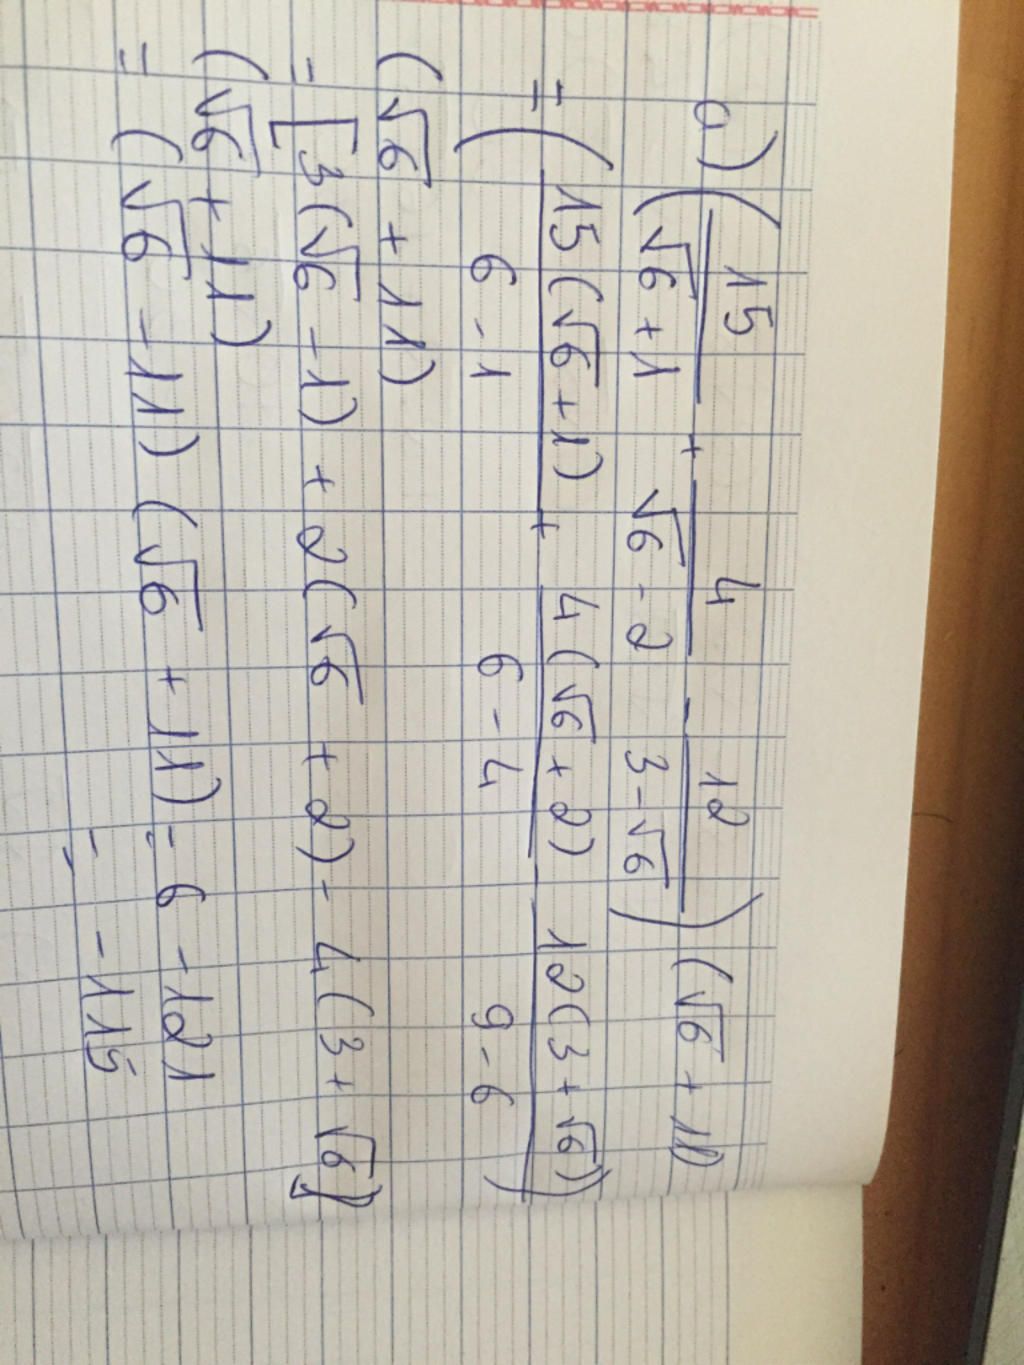 a) (15/(√6+1) + 4/(√6-2) - 12/(3-√6)) (√6+11)
= (15(√6+1)/(6-1) + 4(√6+2)/(6-4) - 12(3+√6)/(9-6))
(√6+11)
= [3(√6-1) + 2(√6+2) - 4(3+√6)]
(√6+11)
= (√6-11) (√6+11) = 6-121
= -115